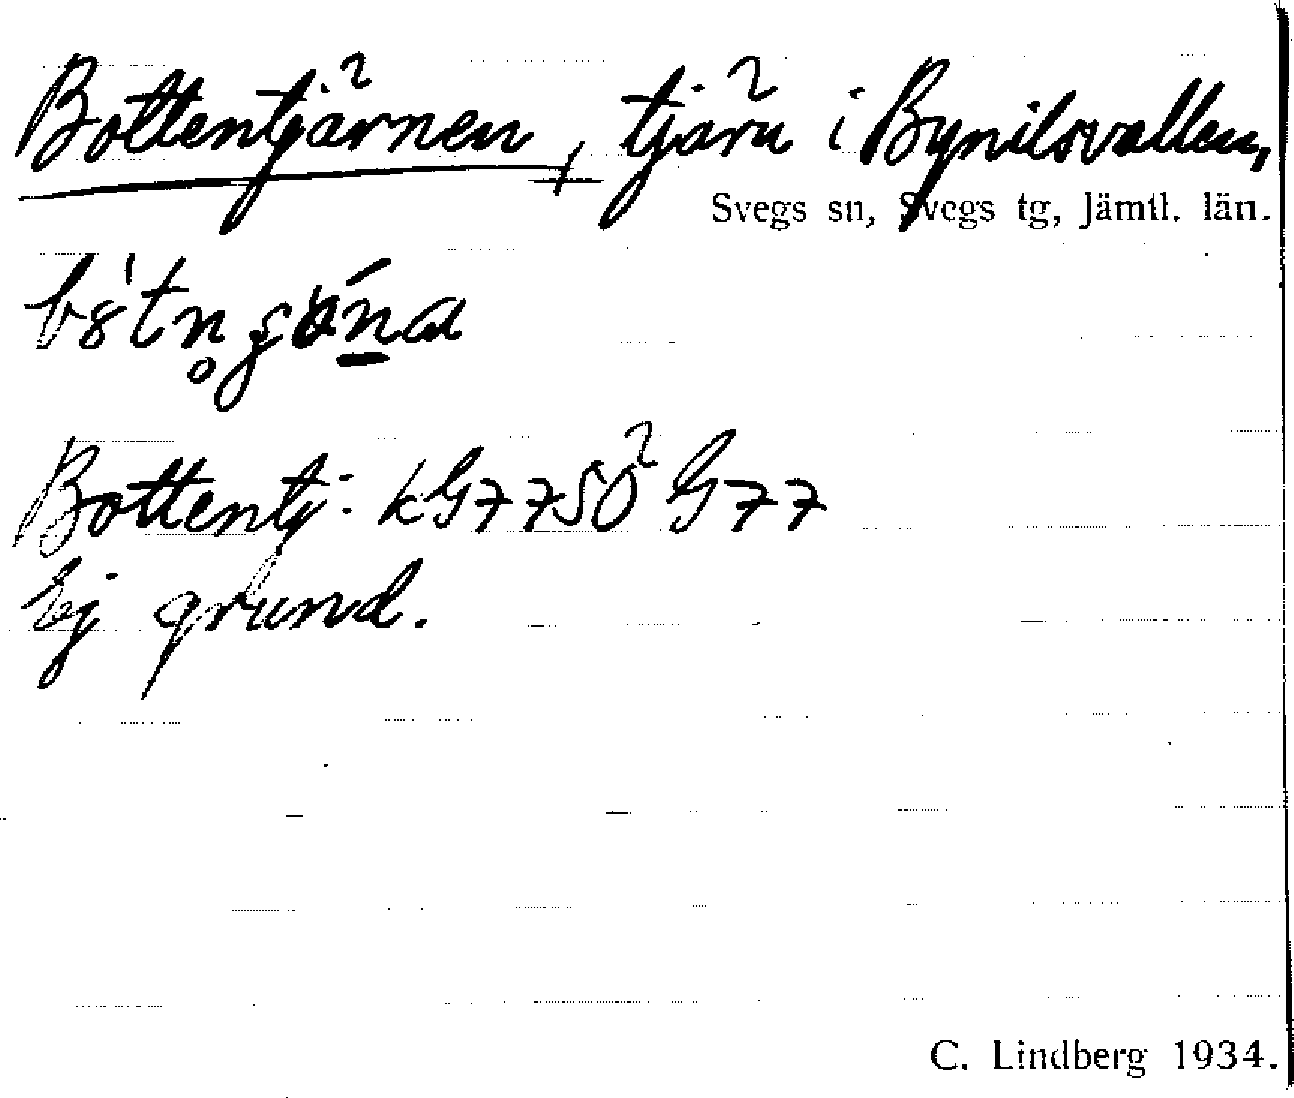 Bottentjärnen, tjärn i Bynilsvallen,
Svegs sn, Svegs tg, Jämtl. län.
Bottentj: kG77SO G77
Ej grund.
C. Lindberg 1934.